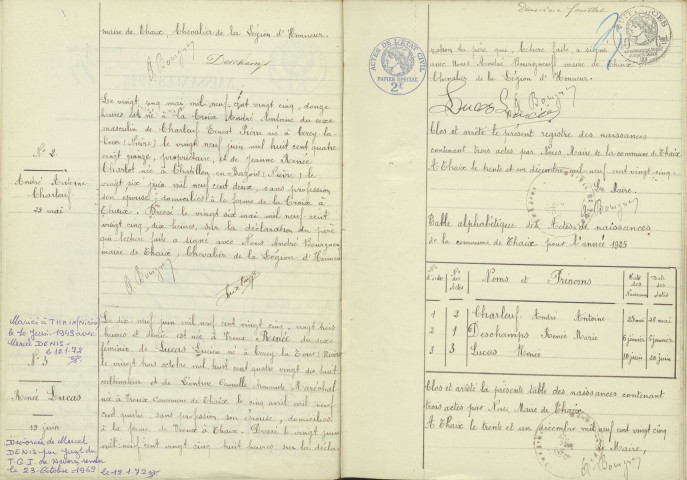 maire de Thaix, Chevalier de la Légion d'Honneur.
A. Bourgny
Deschamps
N° 2
André Antoine
Charleuf
25 mai
Le vingt cinq mai mil neuf cent vingt cinq, douze
heures est né à la Croix André Antoine du sexe
masculin de Charleuf Ernest Pierre né à Cercy-la-
Tour (Nièvre) le vingt neuf juin mil huit cent quatre
vingt quinze, propriétaire, et de Jeanne Renée
Charlot née à Châtillon-en-Bazois (Nièvre) le
vingt six juin mil neuf cent deux, sans profession
son épouse, domiciliés à la ferme de la Croix à
Thaix. Dressé le vingt six mai mil neuf cent
vingt cinq, dix heures, sur la déclaration du père
qui lecture faite a signé avec Nous André Bourgneuf
maire de Thaix, Chevalier de la Légion d'Honneur
A. Bourgny
Mariée à THAIX (Nièvre)
le 10 juin 1943 avec
Marcel DENIS -
le 12.1.72
N° 3
Renée Lucas
19 juin
Divorcée de Marcel
DENIS par jugt du
T.G.I. de Nevers rendu
le 23 Octobre 1969 le 12.1.72
Le dix neuf juin mil neuf cent vingt cinq, vingt trois
heures et demie est née à Vreux Renée du sexe
féminin de Lucas Lucien né à Cercy la Tour (Nièvre)
le vingt trois octobre mil huit cent quatre vingt dix huit
cultivateur et de Léontine Camille Armande Maréchal
née à Vreux Commune de Thaix le cinq avril mil neuf
cent quatre sans profession son épouse, domiciliés
à la ferme de Vreux à Thaix. Dressé le vingt juin
mil neuf cent vingt cinq huit heures sur la décla-
Deuxième feuillet
ACTES DE L'ETAT CIVIL
PAPIER SPECIAL
2F
ration du père qui, lecture faite, a signé
avec nous André Bourgneuf maire de Thaix
Chevalier de la Légion d'Honneur.
Lucas
A. Bourgny
Clos et arrêté le présent registre des naissances
contenant trois actes par Nous, Maire de la commune de Thaix
A Thaix le trente et un décembre mil neuf cent vingt cinq.
Le Maire,
A. Bourgny
Table alphabétique des Actes de naissances
de la commune de Thaix pour l'année 1925
N° d'ordre N° des Actes Noms et Prénoms Date des Naissances Date des Actes
1 2 Charleuf André Antoine 25 mai 26 mai
2 1 Deschamps Renée Marie 6 janvier 7 janvier
3 3 Lucas Renée 19 juin 20 juin
Clos et arrêté la présente table des naissances contenant
trois actes par Nous Maire de Thaix
A Thaix le trente et un décembre mil neuf cent vingt cinq
Le Maire,
A. Bourgny